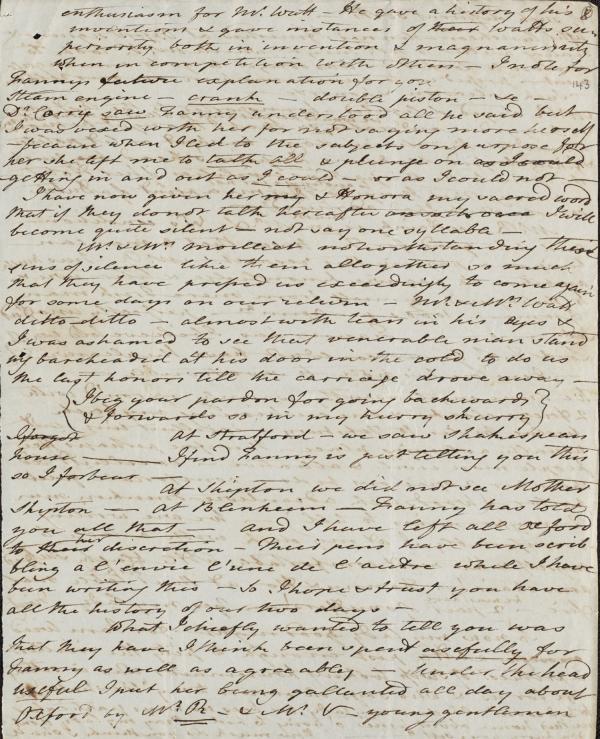 enthusiasm for Mr. Watt – He gave a history of his 8
inventions & gave instances of Watts su-
periority both in invention & magnanimity
when in competition with others – I note for
Fanny's future explanation for you 143
Steam engine – crank – double piston – &c –
Dr. Corrie saw Fanny understood all he said but
I was vexed with her for not saying more herself
– because when I led to the subjects on purpose for
her she left me to talk all & plunge on as I could
getting in and out as I could – or as I could not
I have now given her & Honora my sacred word
that if they do not talk hereafter I will
become quite silent – not say one syllable –
Mr. & Mrs. Moilliet notwithstanding these
sins of silence like them altogether so much
that they have pressed us exceedingly to come again
for some days on our return – Mr. & Mrs. Watt
ditto – ditto – almost with tears in his eyes &
I was ashamed to see that venerable man stand
bareheaded at his door in the cold to do us
the last honors till the carriage drove away –
{I beg your pardon for going backwards
& forwards so in my hurry skurry}
I forgot At Stratford – we saw Shakespears
house – I find Fanny is just telling you this
so I forbear –
At Shipton we did not see Mother
Shipton – At Blenheim – Fanny has told
you all that – and I have left all Oxford
to their discretion – Their pens have been scrib
bling a l'envie l'une de l'autre while I have
been writing this – So I hope & trust you have
all the history of our two days –
What I chiefly wanted to tell you was
that they have I think been spent usefully for
Fanny as well as agreeably – Under the head
useful I put her being gallanted all day about
Oxford by Mr. R – & Mr. V – young gentlemen